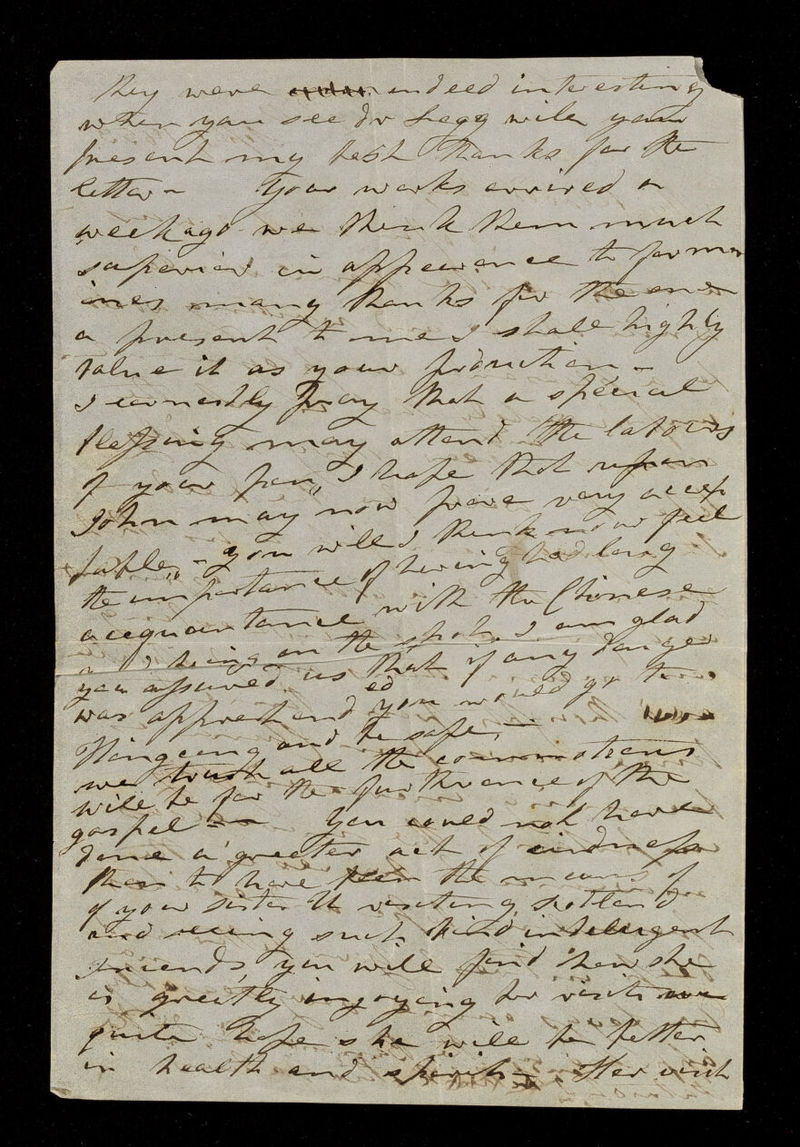 they were indeed interesting
when you see Dr Legg will you
present my best thanks for the
letter - Your works arrived a
week ago we think them much
superior in appearence to former
ones many thanks for the one
a present to me I shall highly
value it as your production -
I earnestly Pray that a special
blessing may attend the labours
of your pen, I hope that upon
John may now prove very accep
table, - you will I think now feel
the importance of having had long
acquantance with the Chinese
and being on the spot, I am glad
you assured us that if any danger
was apprehended you would go to
Hongcong and be safe, -
we trust all the commotions
will be for the furtherance of the
gospel - You could not have
done a greater act of kindness
than to have been the means of
of your sister U visiting Scotland
and seeing such kind inteligent
friends, you will find how she
is greatly injoying her visit we
quite hope she will be better
in health and spirits - Her visit